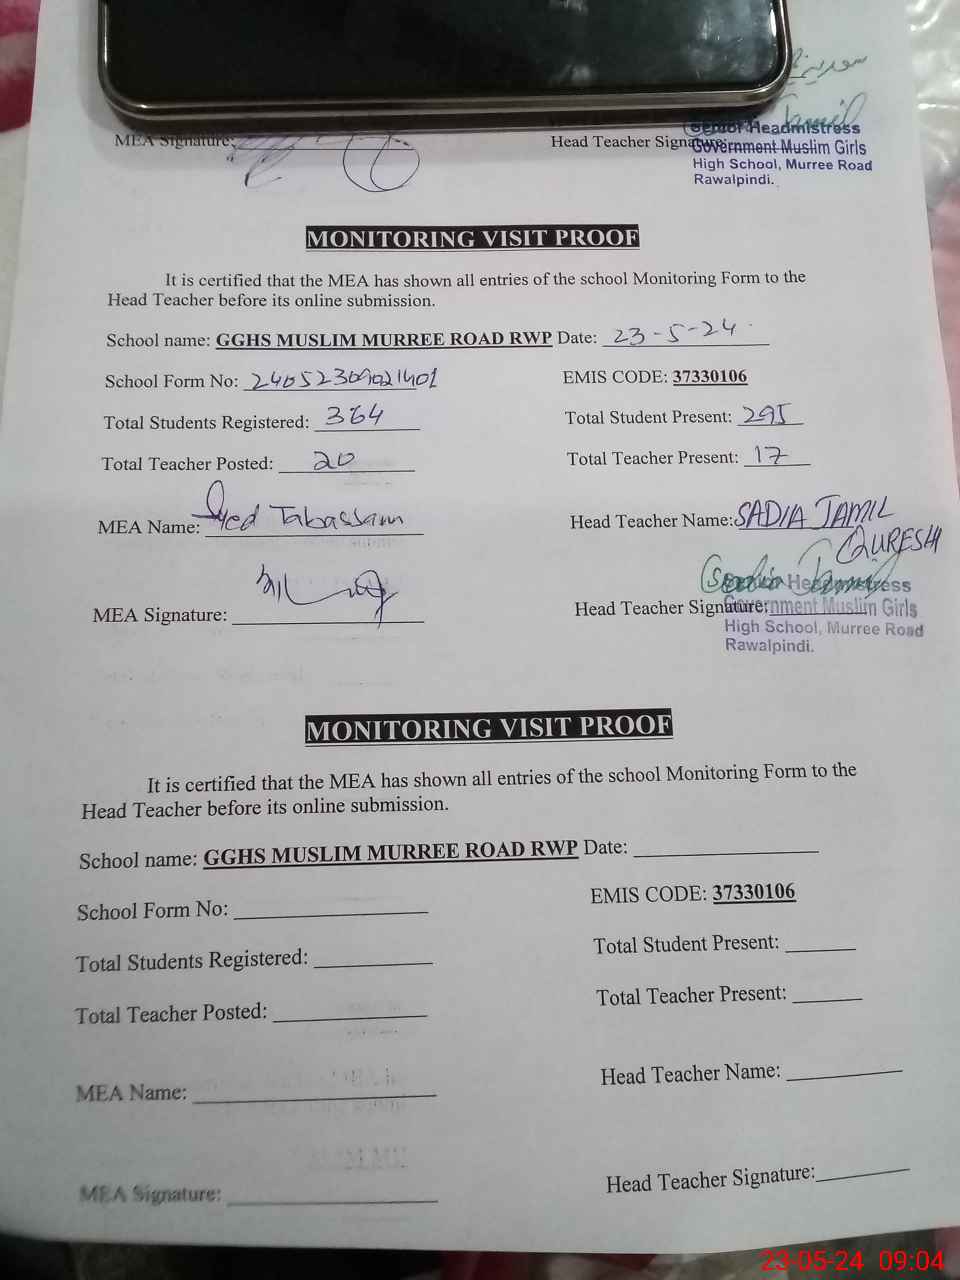 MEA Signature:
Head Teacher Signature:
Senior Headmistress
Government Muslim Girls
High School, Murree Road
Rawalpindi.
MONITORING VISIT PROOF
It is certified that the MEA has shown all entries of the school Monitoring Form to the
Head Teacher before its online submission.
School name: GGHS MUSLIM MURREE ROAD RWP Date: 23-5-24
School Form No: EMIS CODE: 37330106
Total Students Registered: 364 Total Student Present: 295
Total Teacher Posted: 20 Total Teacher Present: 17
MEA Name: Syed Tabassam Head Teacher Name: SADIA JAMIL
QURESHI
MEA Signature: Head Teacher Signature:
Senior Headmistress
Government Muslim Girls
High School, Murree Road
Rawalpindi.
MONITORING VISIT PROOF
It is certified that the MEA has shown all entries of the school Monitoring Form to the
Head Teacher before its online submission.
School name: GGHS MUSLIM MURREE ROAD RWP Date:
School Form No: EMIS CODE: 37330106
Total Students Registered: Total Student Present:
Total Teacher Posted: Total Teacher Present:
MEA Name: Head Teacher Name:
MEA Signature: Head Teacher Signature:
23-05-24 09:04